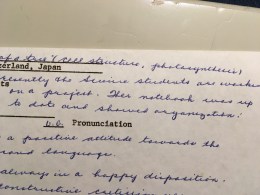 of a tree (cell structure, photosynthesis)
zerland, Japan
resently the science students are worken
ts
on a project. Ther notebook was up
to date and showed organization.
U.S. Pronunciation
a positive attitude towards the
nd language.
always in a happy disposition.
constructive criticism